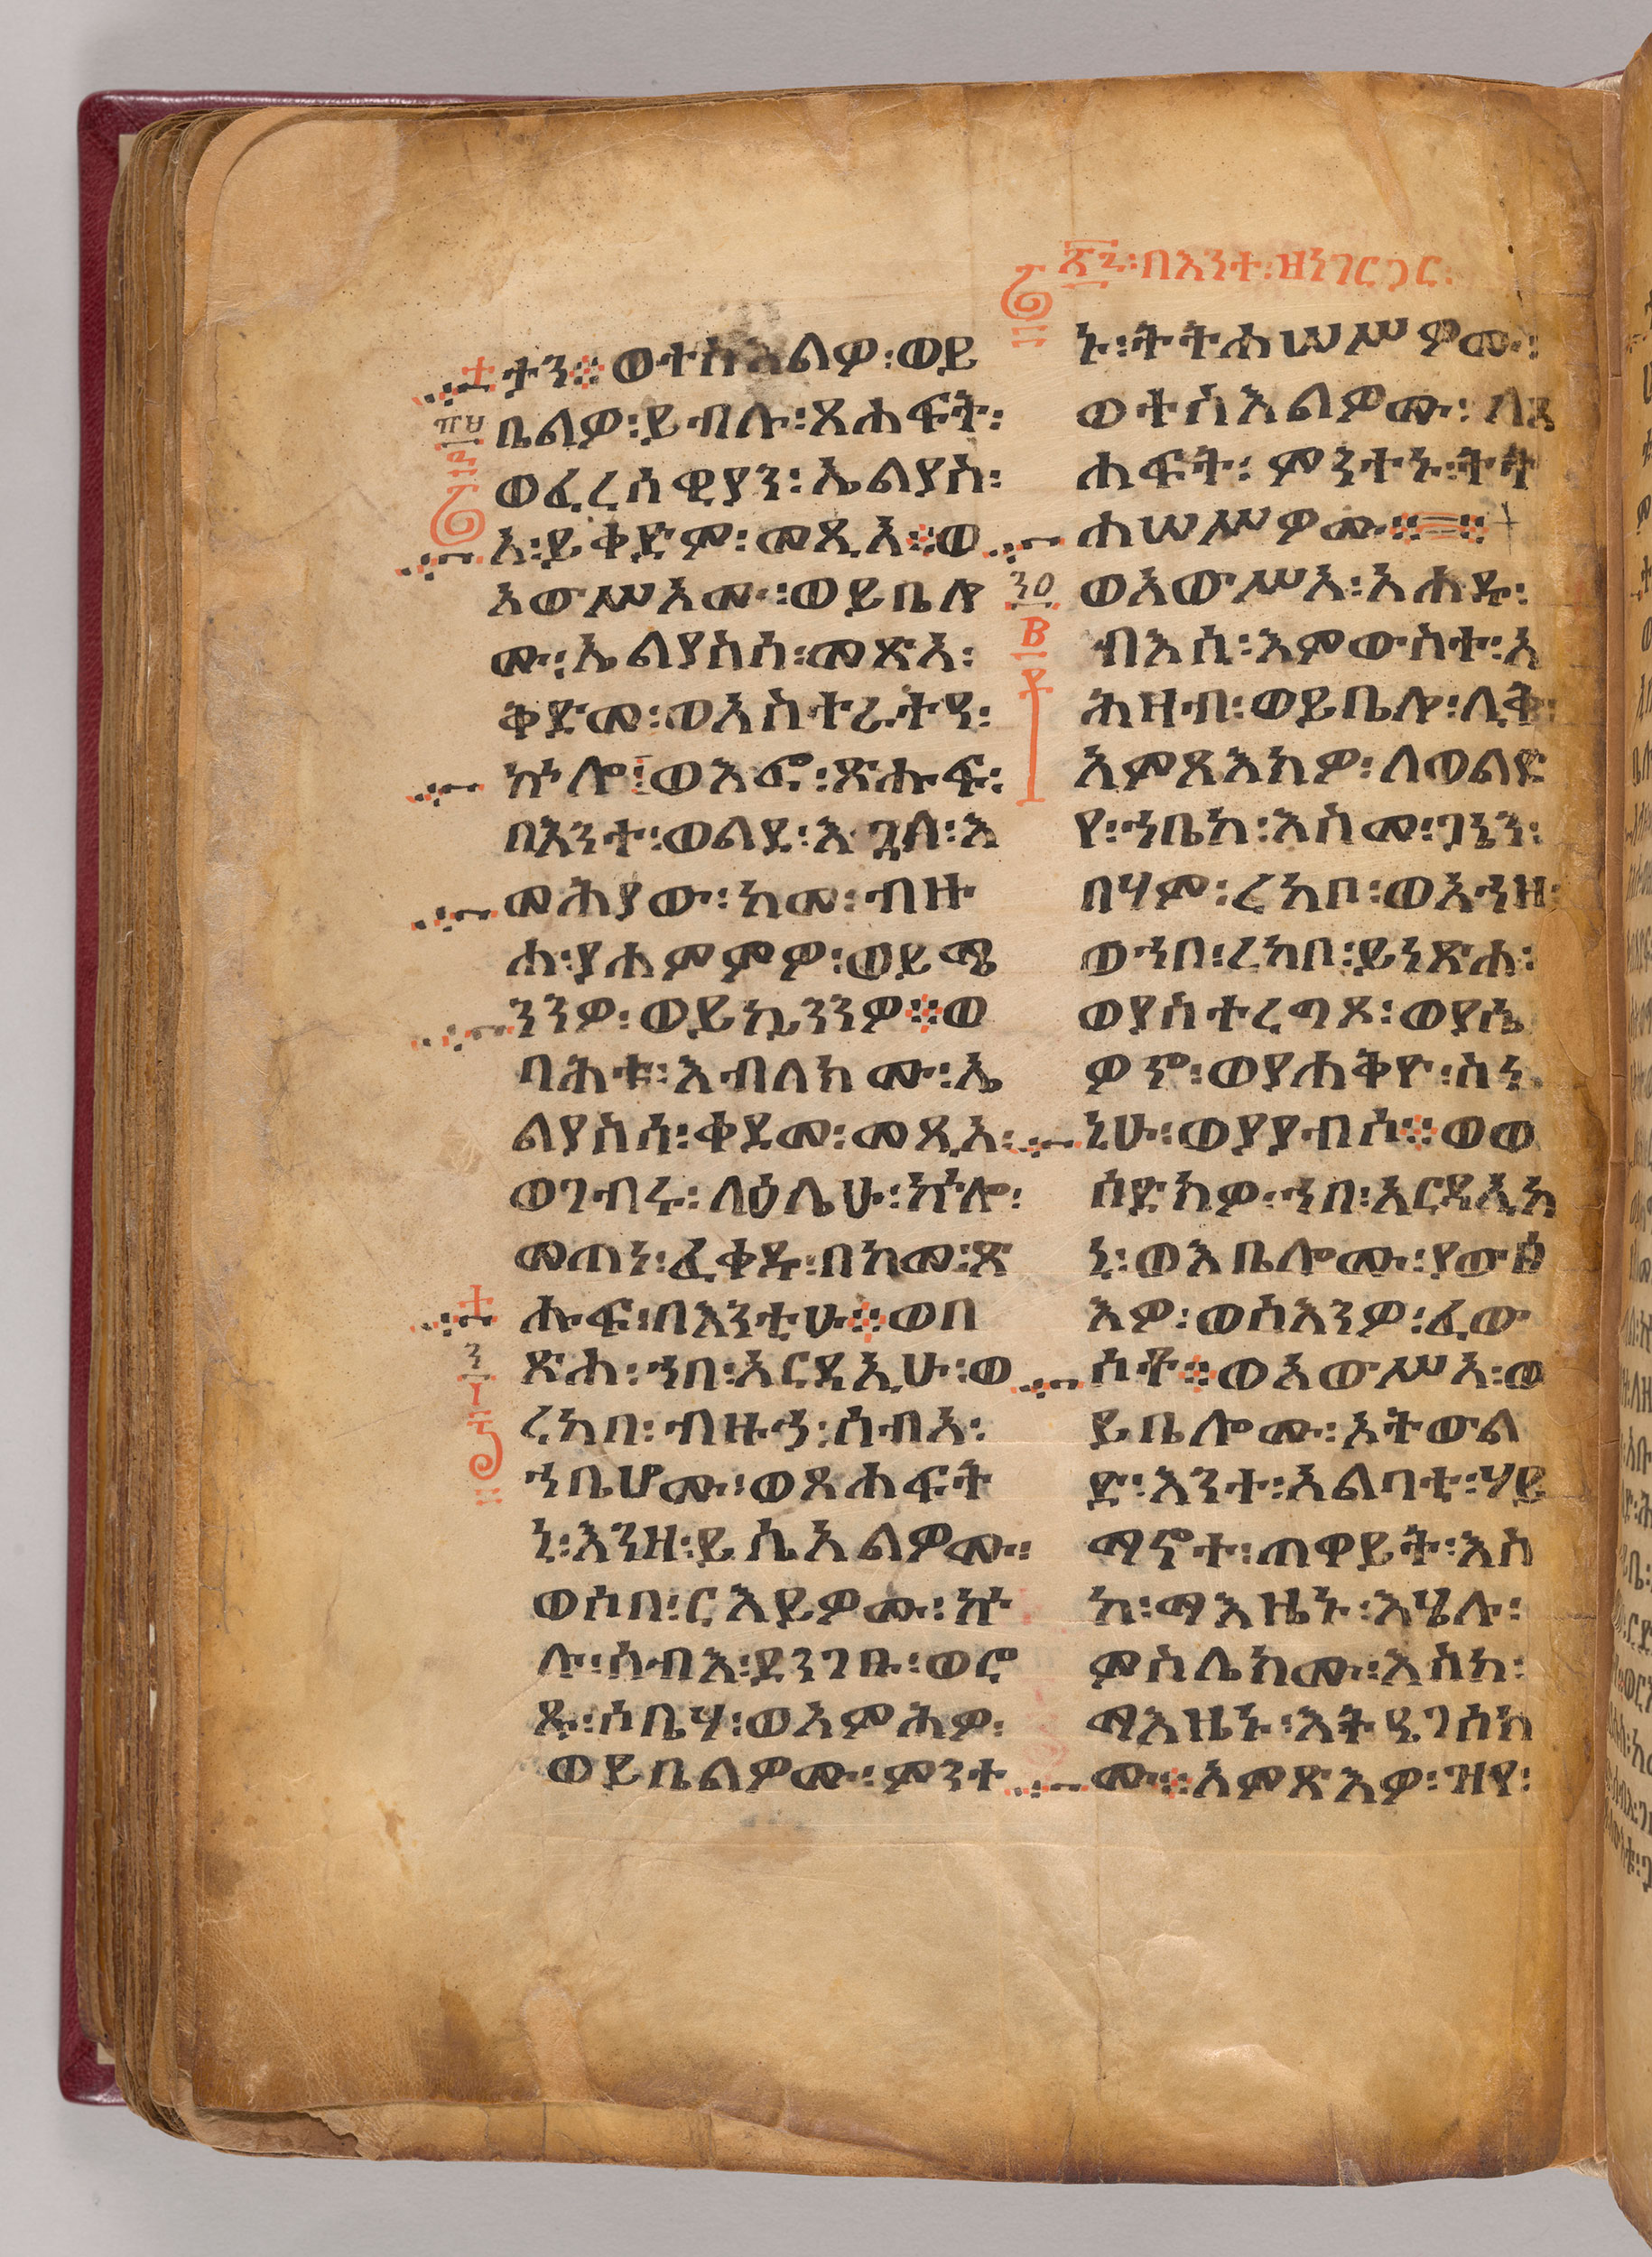 ፳፭፡በእንተ፡ዘንገርጋር፡
ተን፨ወተስእልዎ፡ወይ
ቤልዎ፡ይብሉ፡ጸሐፍት፡
ወፈሪሰዊያን፡ኤልያስ፡
አ፡ይቅድም፡መጺአ፨ወ
አውሥአሙ፡ወይቤሎ
ሙ፡ኤልያስሰ፡መጽአ፡
ቅድመ፡ወአስተራትዓ፡
ኵሎ፡ወእፎ፡ጽሑፍ፡
በእንተ፡ወልደ፡እጓለ፡እ
መሕያው፡ከመ፡ብዙ
ኀ፡ያሐምምዎ፡ወይሜ
ንንዎ፡ወይኬንንዎ፨ወ
ባሕቱ፡እብለክሙ፡ኤ
ልያስሰ፡ቀደመ፡መጺአ፡
ወገብሩ፡ላዕሌሁ፡ኵሎ፡
መጠነ፡ፈቀዱ፡በከመ፡ጽ
ሑፍ፡በእንቲሁ፨ወበ
ጽሐ፡ኀበ፡አርዳኢሁ፡ወ
ረከበ፡ብዙኅ፡ሰብአ፡
ኀቤሆሙ፡ወጸሐፍት
ኒ፡እንዘ፡ይሴአልዎሙ፡
ወሶበ፡ርእይዎሙ፡ኵ
ሉ፡ሰብእ፡ደንገፁ፡ወሮ
ጹ፡ሶቤሃ፡ወአምሕዎ፡
ወይቤልዎሙ፡ምንተ
ኑ፡ትትሐሠሥዎሙ፡
ወተስእልዎሙ፡ለጸ
ሐፍት፡ምንተኑ፡ትት
ሐሠሥዎሙ፨
ወአውሥአ፡አሐዱ፡
ብእሲ፡እምውስተ፡አ
ሕዛብ፡ወይቤሎ፡ሊቅ፡
አምጻእክዎ፡ለወልድ
የ፡ኀቤከ፡እስመ፡ጋኔን፡
በሃም፡ረከቦ፡ወአኀዘ፡
ወኀበ፡ረከቦ፡ይነጽሐ፡
ወያስተረግጾ፡ወያሴ
ዎሞ፡ወያሐቅዮ፡ስነ
ኒሁ፡ወያያብሶ፨ወወ
ሰድክዎ፡ኀበ፡አርዳኢከ
ኒ፡ወእቤሎሙ፡ያውፅ
እዎ፡ወስእንዎ፡ፈው
ሶቶ፨ወአውሥአ፡ወ
ይቤሎሙ፡አትውል
ድ፡እንተ፡አልባቲ፡ሃይ
ማኖተ፡ጠዋይት፡እስ
ከ፡ማእዜኑ፡እሄሉ፡
ምስሌክሙ፡እስከ፡
ማእዜኑ፡እትዔገሰክ
ሙ፨አምጽእዎ፡ዝየ፡